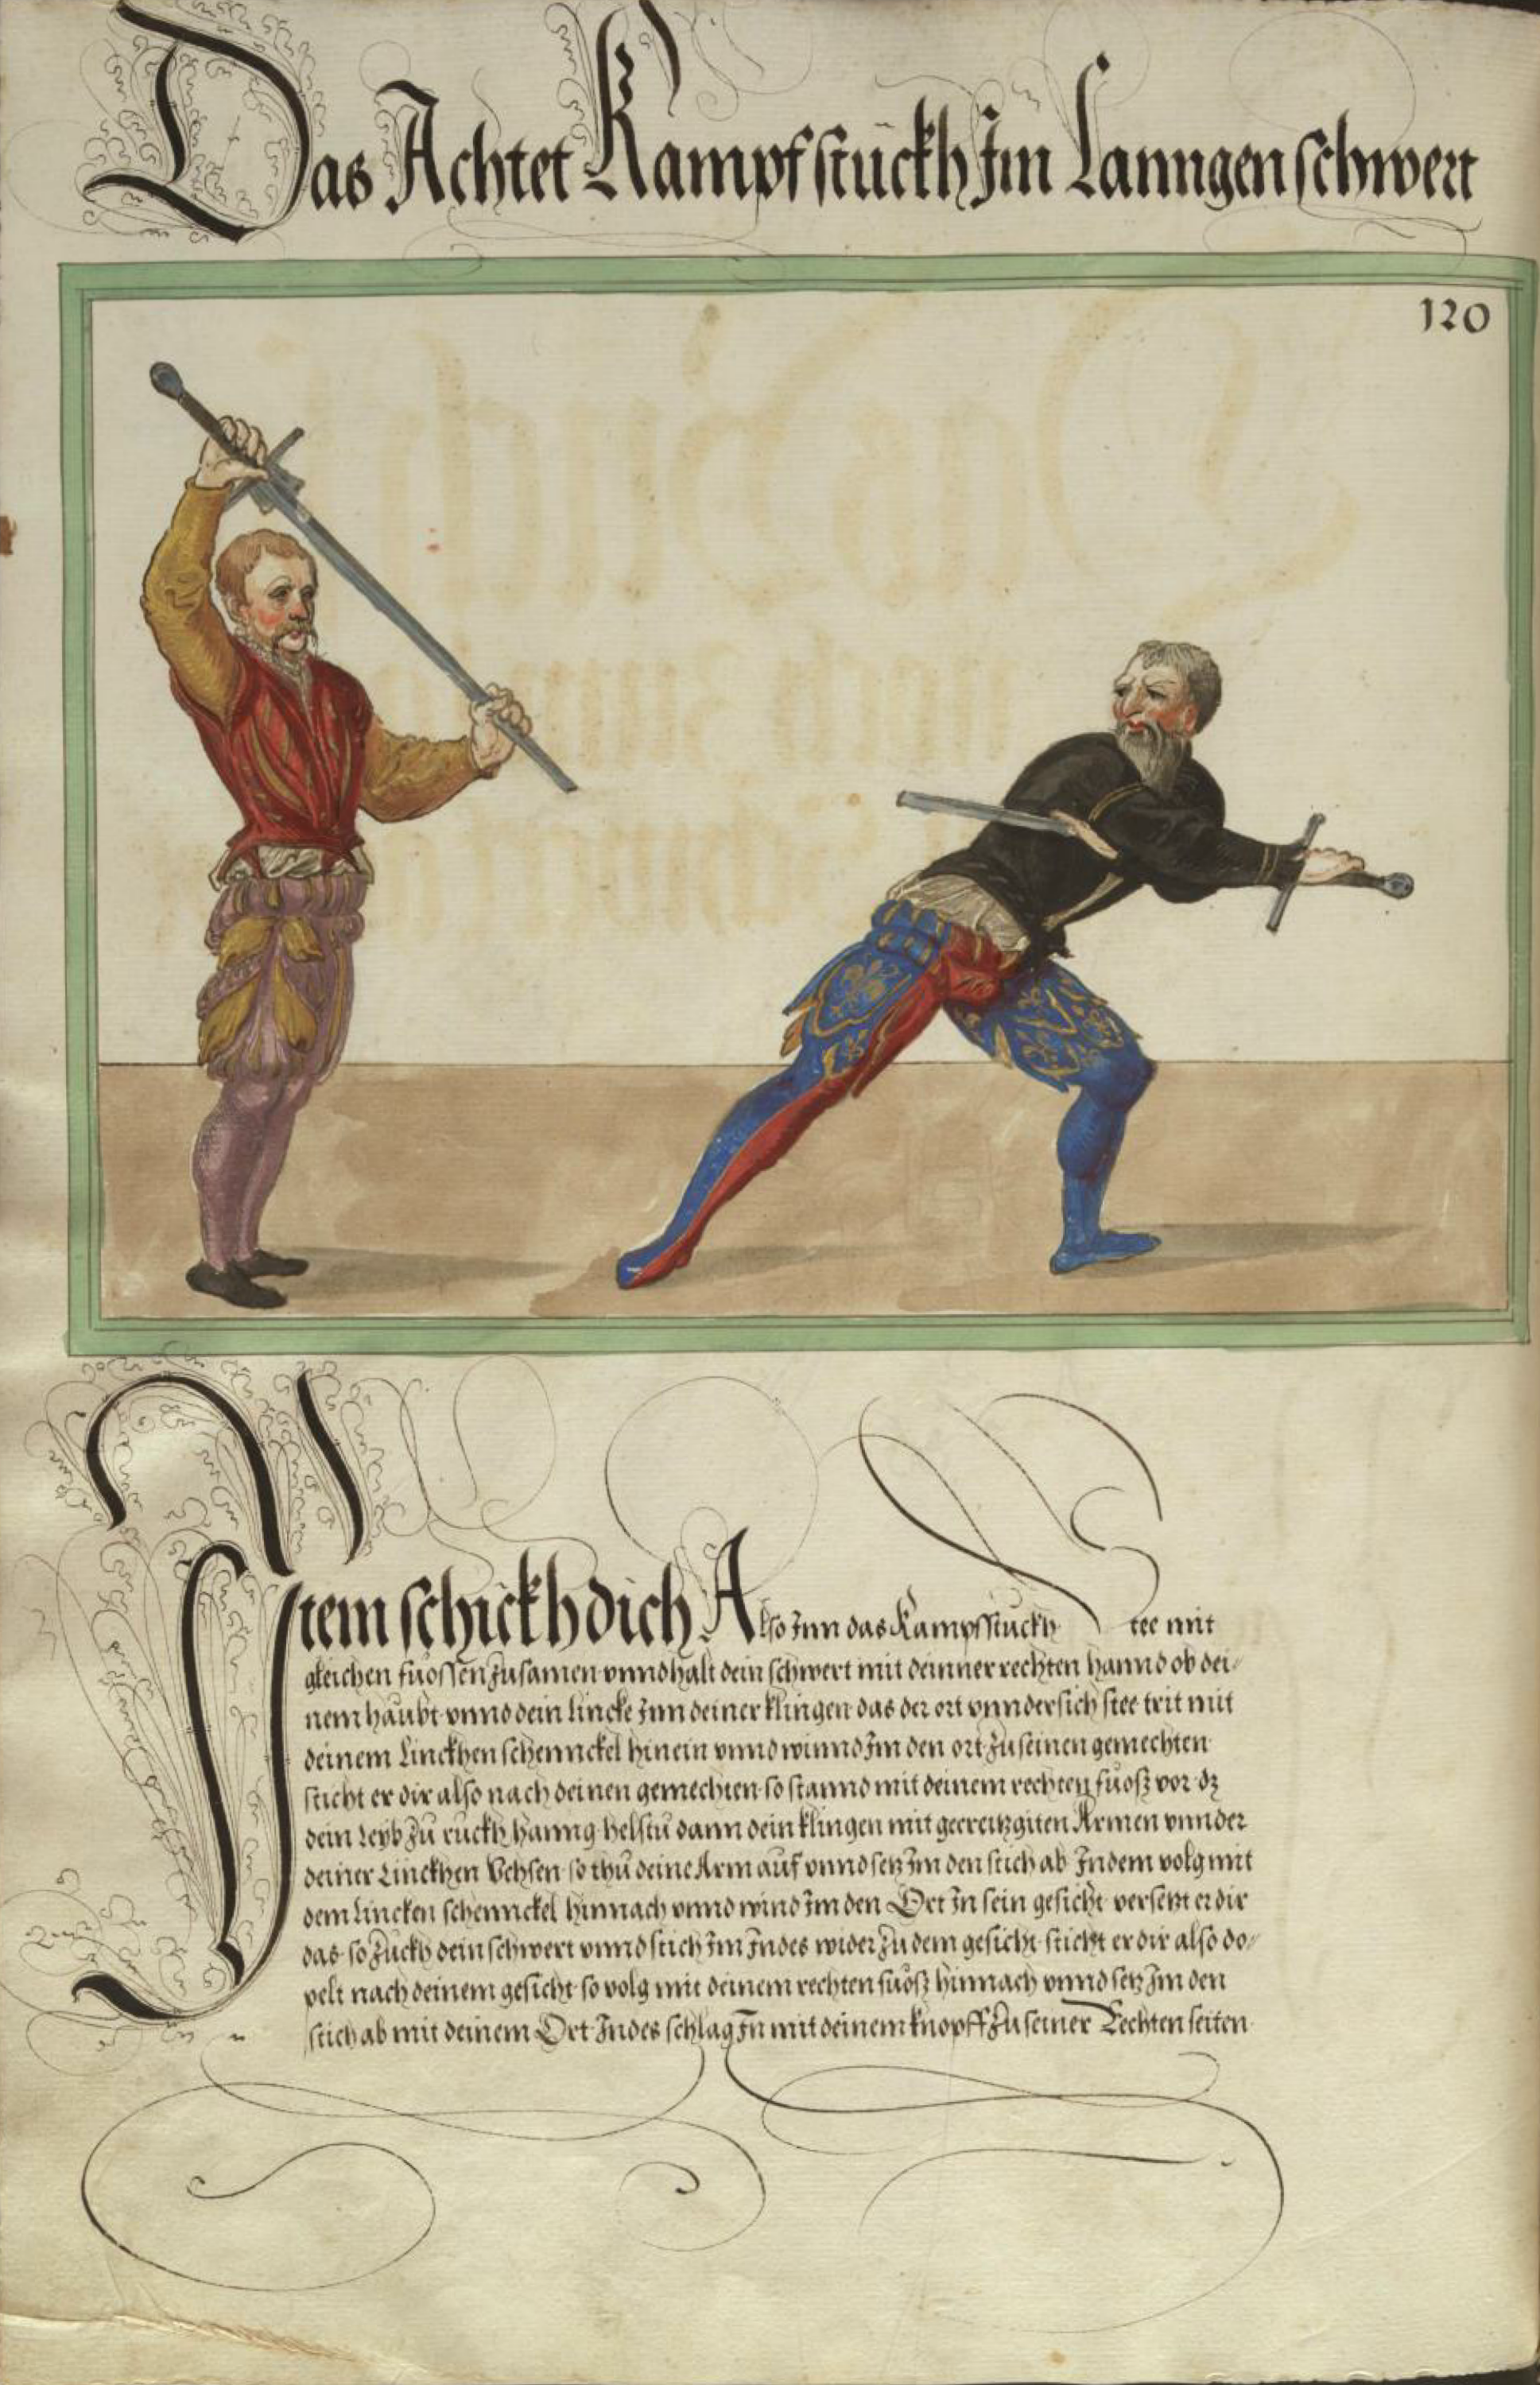 Das Achtet Kampfstückh Im Lanngen schwert
120
Item schickh dich Also Inn das Kampfstuckh Stee mit
gleichen fuossen zusamen vnnd halt dein schwert mit deinner rechten hannd ob dei-
nem haubt vnnd dein lincke Inn deiner klingen das der ort vnndersich stee trit mit
deinem Linckhen schennckel hinein vnnd winnd Im den ort zu seinen gemechten
sticht er dir also nach deinen gemechten so stannd mit deinem rechten fuosz vor dz
dein leyb zu ruckh hanng helstu dann dein klingen mit gecreitzgiten Armen vnnder
deiner Linckhen Vchsen so thu deine Arm auf vnnd setz Im den stich ab Indem volg mit
dem Lincken schennckel hinnach vnnd wind Im den Ort In sein gesicht versetzt er dir
das so zuckh dein schwert vnnd stich Im Indes wider zu dem gesicht sticht er dir also do-
pelt nach deinem gesicht so volg mit deinem rechten fuosz hinnach vnnd setz Im den
stich ab mit deinem Ort Indes schlag In mit deinem knopff zu seiner Rechten seiten